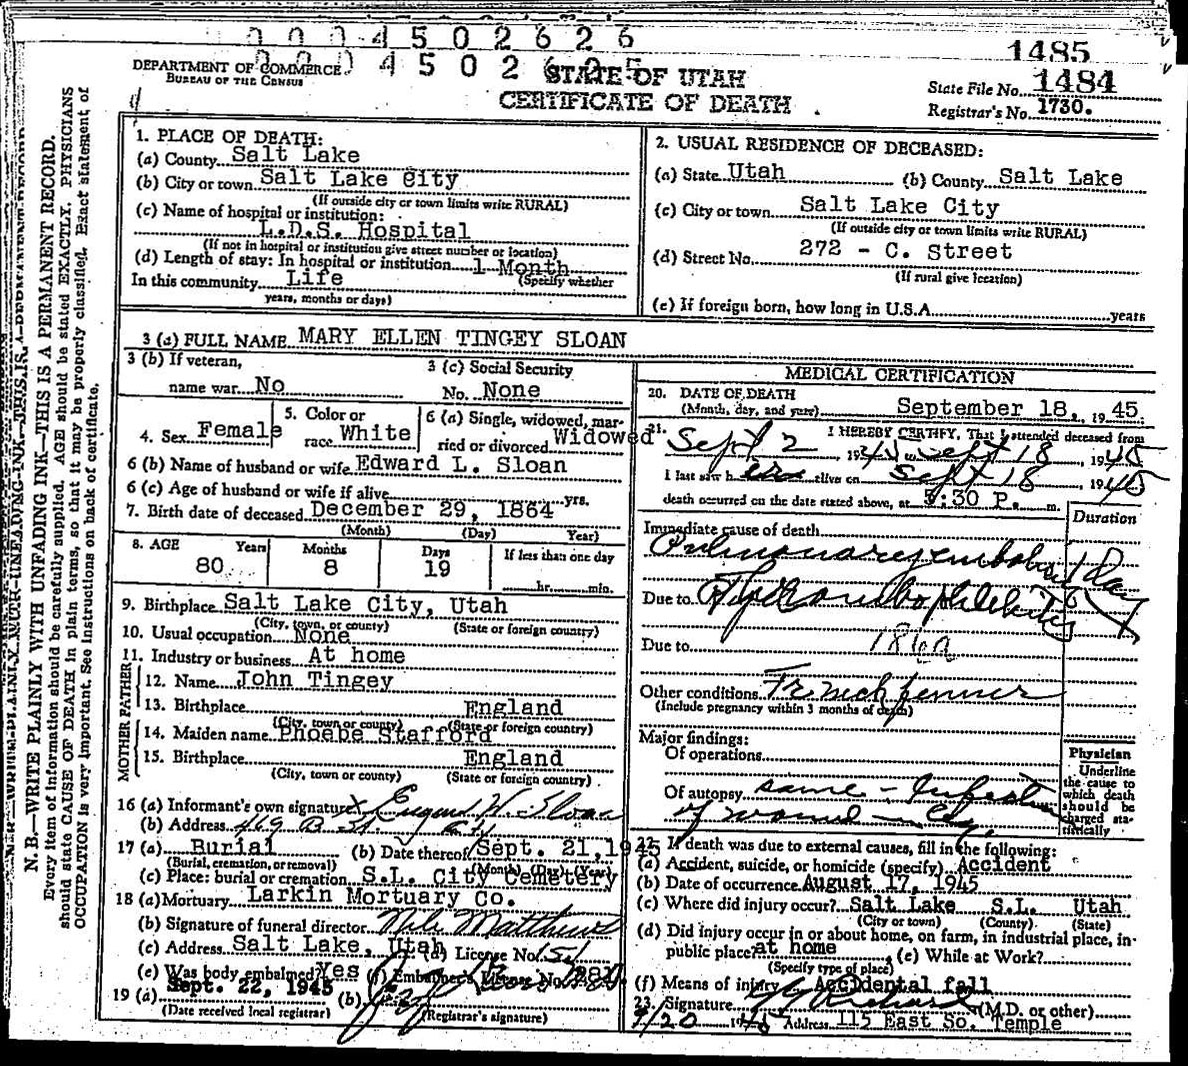 0 0 0 4 5 0 2 6 2 6
0 0 0 4 5 0 2 6 2 5
1485
DEPARTMENT OF COMMERCE
BUREAU OF THE CENSUS
STATE OF UTAH
CERTIFICATE OF DEATH
State File No. 1484
Registrar's No. 1730.
N. B.—WRITE PLAINLY WITH UNFADING INK—THIS IS A PERMANENT RECORD.
Every item of information should be carefully supplied. AGE should be stated EXACTLY. PHYSICIANS
should state CAUSE OF DEATH in plain terms, so that it may be properly classified. Exact statement of
OCCUPATION is very important. See instructions on back of certificate.
1. PLACE OF DEATH:
(a) County Salt Lake
(b) City or town Salt Lake City
(If outside city or town limits write RURAL)
(c) Name of hospital or institution:
L.D.S. Hospital
(If not in hospital or institution give street number or location)
(d) Length of stay: In hospital or institution 1 Month
(Specify whether
In this community Life
years, months or days)
2. USUAL RESIDENCE OF DECEASED:
(a) State Utah (b) County Salt Lake
(c) City or town Salt Lake City
(If outside city or town limits write RURAL)
(d) Street No. 272 - C. Street
(If rural give location)
(e) If foreign born, how long in U.S.A. years
3 (a) FULL NAME MARY ELLEN TINGEY SLOAN
3 (b) If veteran,
name war No
3 (c) Social Security
No. None
4. Sex Female
5. Color or
race White
6 (a) Single, widowed, mar-
ried or divorced Widowed
6 (b) Name of husband or wife Edward L. Sloan
6 (c) Age of husband or wife if alive yrs.
7. Birth date of deceased December 29, 1864
(Month) (Day) Year)
8. AGE Years Months Days If less than one day
80 8 19 hr. min.
9. Birthplace Salt Lake City, Utah
(City, town, or county) (State or foreign country)
10. Usual occupation None
11. Industry or business At home
FATHER
12. Name John Tingey
13. Birthplace England
(City, town or county) (State or foreign country)
MOTHER
14. Maiden name Phoebe Stafford
15. Birthplace England
(City, town or county) (State or foreign country)
16 (a) Informant's own signature X Eugene W. Sloan
(b) Address 469 B St. City
17 (a) Burial (b) Date thereof Sept. 21, 1945
(Burial, cremation, or removal) (Month) (Day) (Year)
(c) Place: burial or cremation S.L. City Cemetery
18 (a) Mortuary Larkin Mortuary Co.
(b) Signature of funeral director
(c) Address Salt Lake, Utah (d) License No. 151
(e) Was body embalmed? Yes (f) Embalmer's License No.
19 (a) Sept. 22, 1945 (b)
(Date received local registrar) (Registrar's signature)
MEDICAL CERTIFICATION
20. DATE OF DEATH
(Month, day, and year) September 18, 1945.
21. I HEREBY CERTIFY, That I attended deceased from
Sept 2 1945 to Sept 18, 1945
I last saw her alive on Sept 18, 1945
death occurred on the date stated above, at 5:30 P. m.
Duration
Immediate cause of death
Pulmonary embolism 1 Day
Due to Thrombophlebitis
Due to 186a
Other conditions Fr. neck femur
(Include pregnancy within 3 months of death)
Major findings:
Of operations
Of autopsy same - Infection
of wound
Physician
Underline
the cause to
which death
should be
charged sta-
tistically
If death was due to external causes, fill in the following:
(a) Accident, suicide, or homicide (specify) Accident
(b) Date of occurrence August 17, 1945
(c) Where did injury occur? Salt Lake S.L. Utah
(City or town) (County) (State)
(d) Did injury occur in or about home, on farm, in industrial place, in-
public place? at home (e) While at Work?
(Specify type of place)
(f) Means of injury Accidental fall
23. Signature (M.D. or other)
9/20 1945 Address 115 East So. Temple